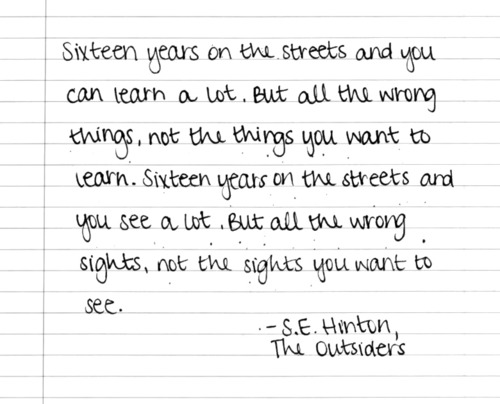 Sixteen years on the streets and you
can learn a lot. But all the wrong
things, not the things you want to
learn. Sixteen years on the streets and
you see a lot. But all the wrong
sights, not the sights you want to
see.
- S.E. Hinton,
The Outsiders